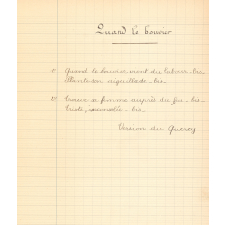 Quand le bouvier
1º Quand le bouvier vient du labour - bis
Plante son aiguillade - bis.
2º Trouve sa femme auprès du feu - bis
Triste, - bis -
Version du Quercy